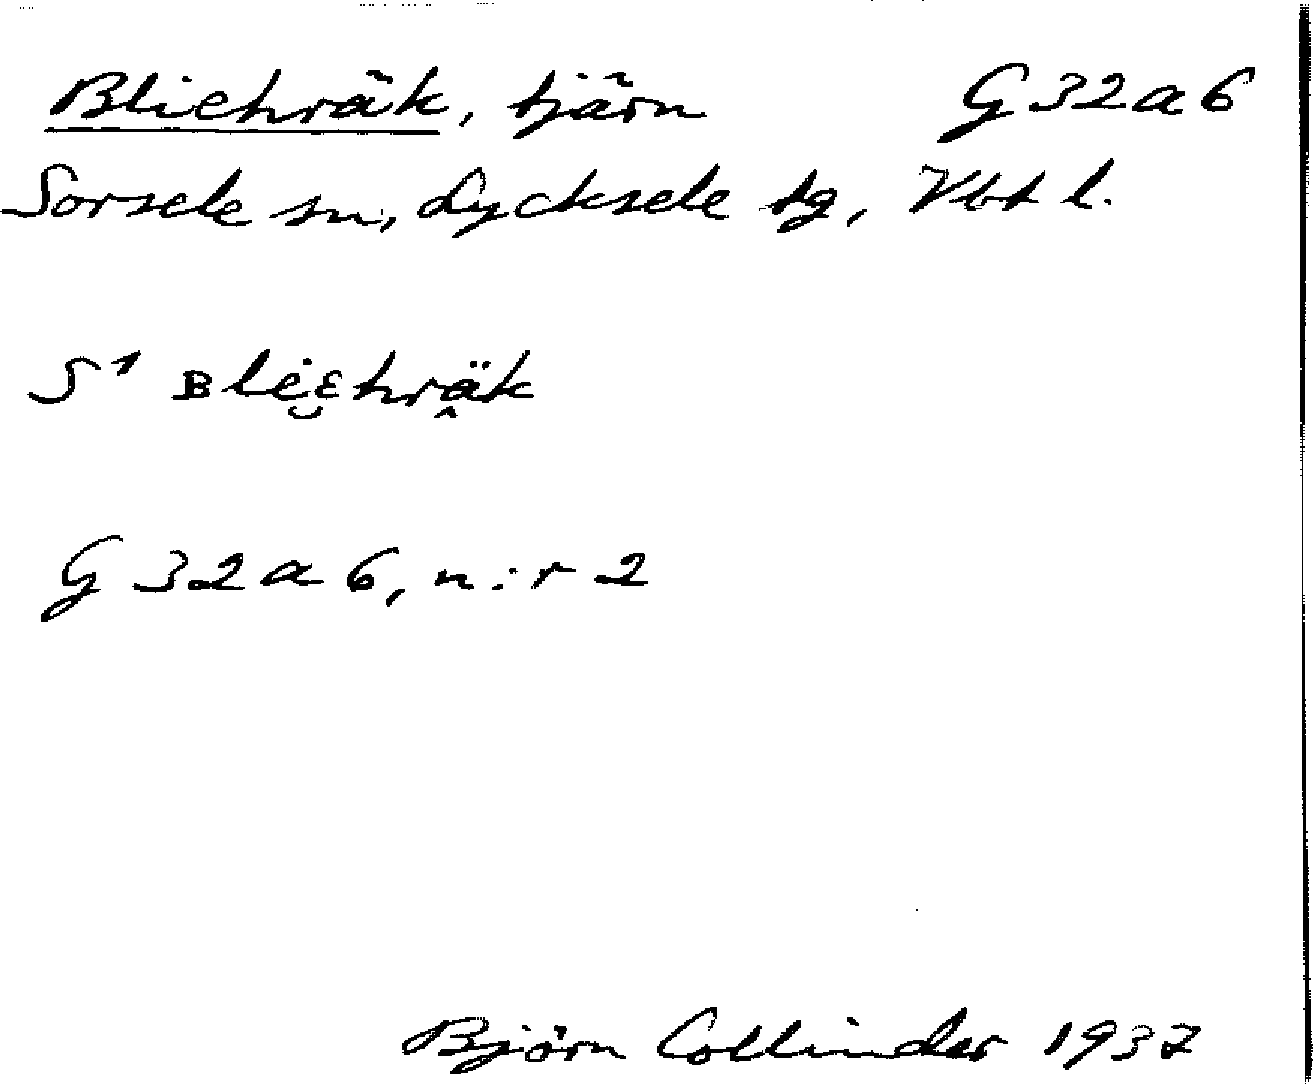 Bliehräk, tjärn G32a6
Sorsele sn, Lycksele tg, Vbt l.
S¹ ʙlė̮ɛhrä̭k
G 32a6, n:r 2
Björn Collinder 1937